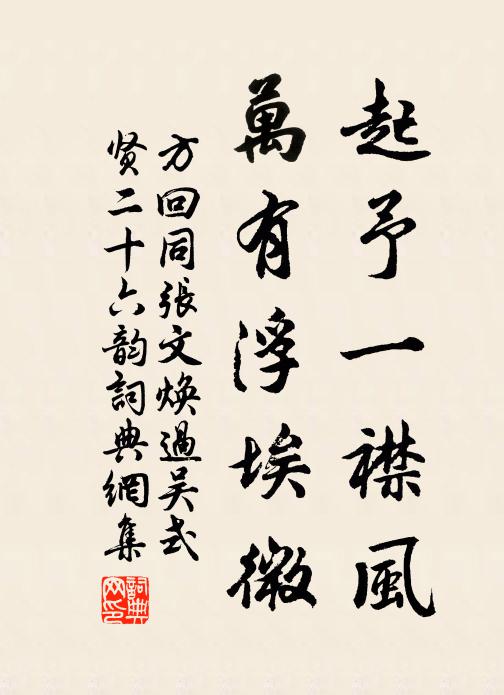 起予一襟風
萬有浮埃微
方回同張文焕過吴式
贤二十六韵詞典網集